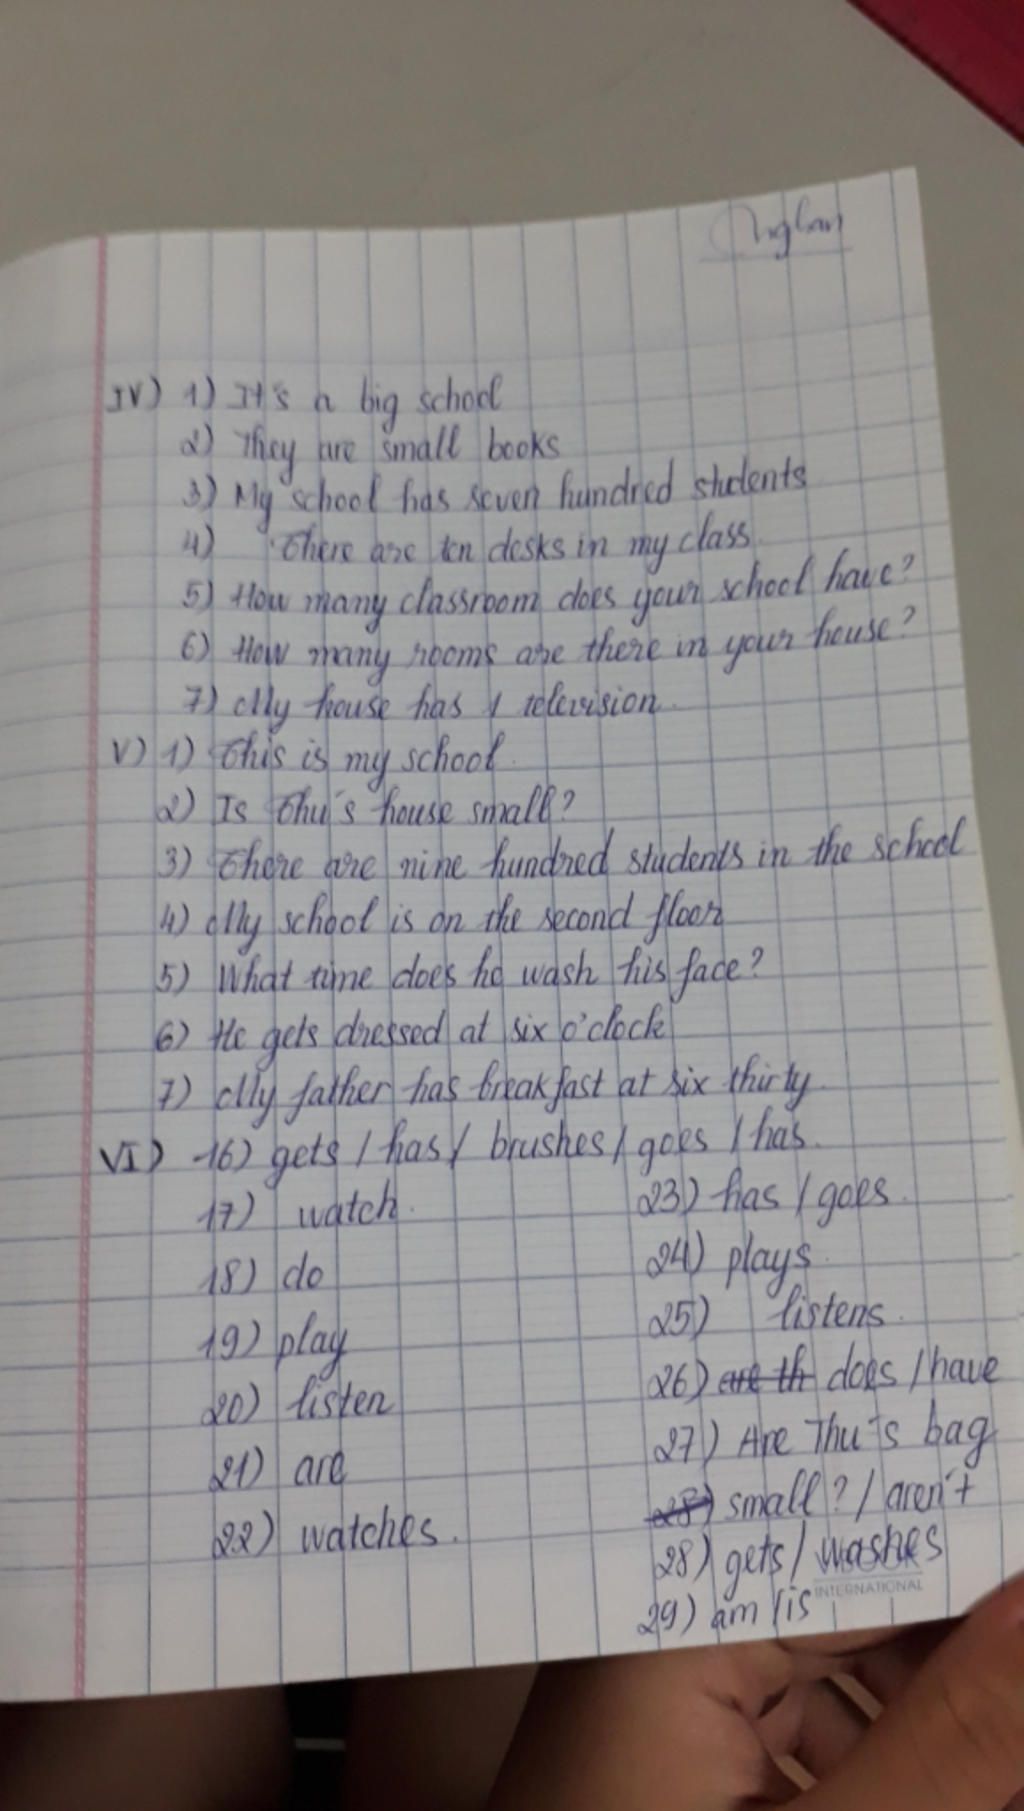 IV) 1) It's a big school
2) They are small books
3) My school has seven hundred students
4) There are ten desks in my class.
5) How many classroom does your school have?
6) How many rooms are there in your house?
7) My house has 1 television.
V) 1) This is my school.
2) Is Thu's house small?
3) There are nine hundred students in the school
4) My school is on the second floor
5) What time does he wash his face?
6) He gets dressed at six o'clock
7) My father has breakfast at six thirty.
VI) 16) gets / has / brushes / goes / has.
17) watch.
18) do
19) play
20) listen
21) are
22) watches.
23) has / goes.
24) plays.
25) listens.
26) are th does / have
27) Are Thu's bag
28) small? / aren't
28) gets / washes
INTERNATIONAL
29) am / is